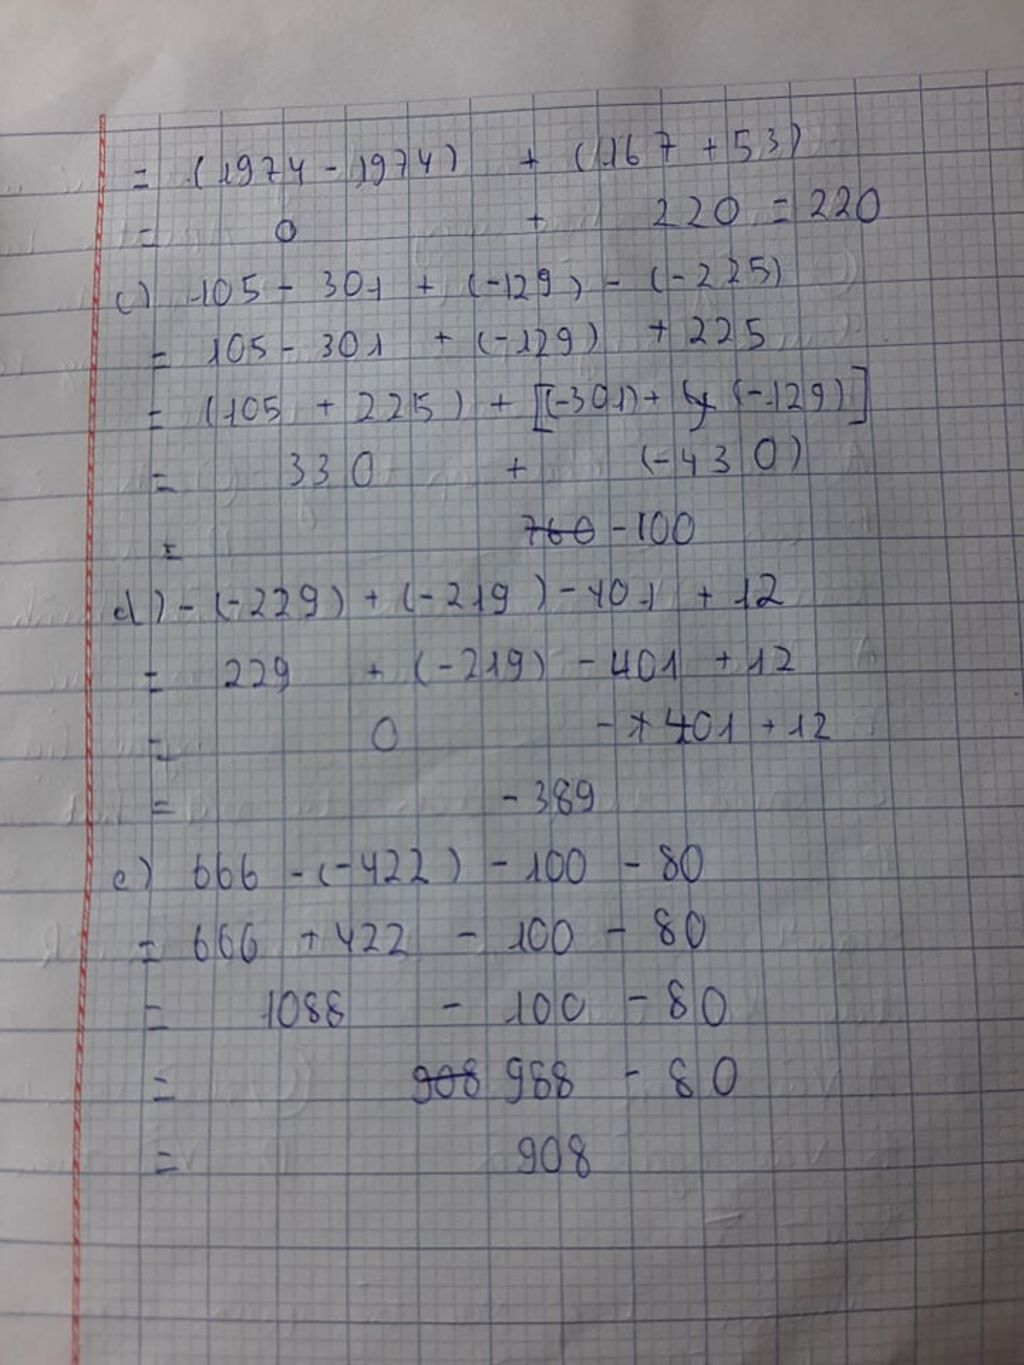 = (1974 - 1974) + (167 + 53)
= 0 + 220 = 220
c) 105 - 301 + (-129) - (-225)
= 105 - 301 + (-129) + 225
= (105 + 225) + [(-301) + (-129)]
= 330 + (-430)
= 760 -100
d) - (-229) + (-219) - 401 + 12
= 229 + (-219) - 401 + 12
= 0 - + 401 + 12
= - 389
e) 666 - (-422) - 100 - 80
= 666 + 422 - 100 - 80
= 1088 - 100 - 80
= 908 988 - 80
= 908